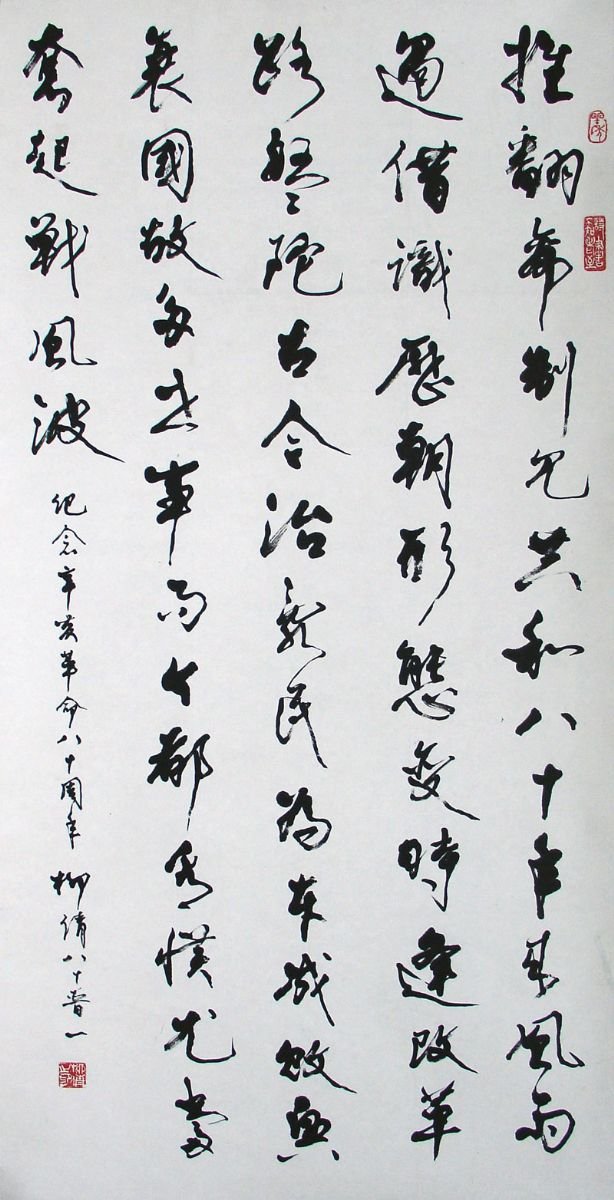 推翻帝制見共和八十年來風雨
過借識歷朝形態變時逢改革
路盤陀古今治亂民為本成敗興
衰國故多世事而今都看慣尤當
奮起戰風波
紀念辛亥革命八十周年 柳倩八十晉一